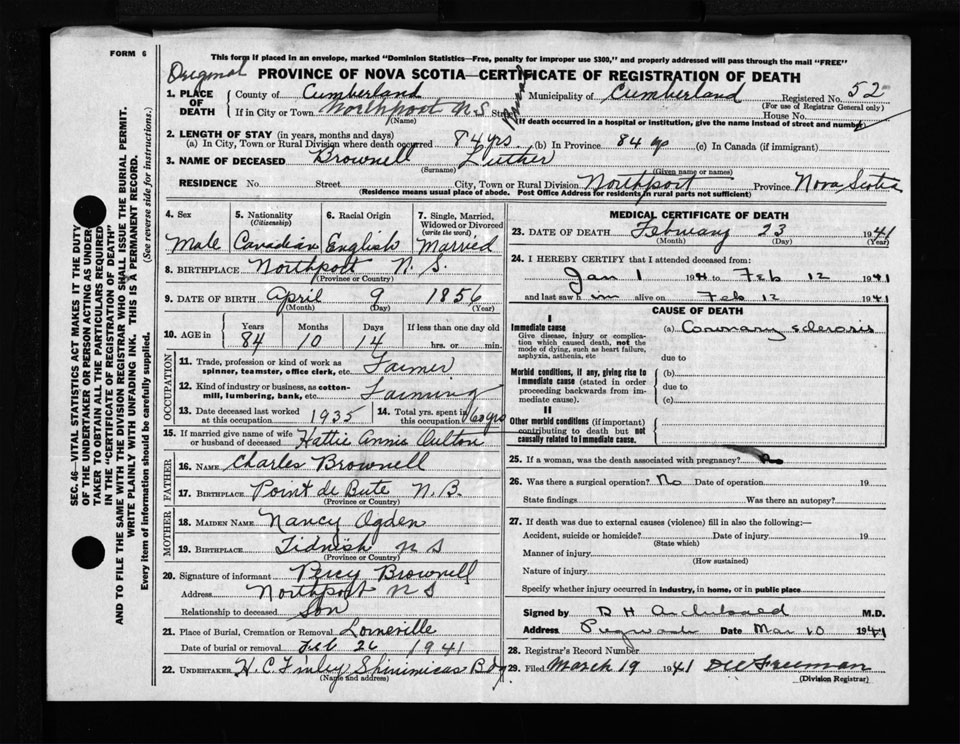 FORM 6
This form if placed in an envelope, marked "Dominion Statistics—Free, penalty for improper use $300," and properly addressed will pass through the mail "FREE"
Original
PROVINCE OF NOVA SCOTIA—CERTIFICATE OF REGISTRATION OF DEATH
1. PLACE OF DEATH
County of Cumberland Municipality of Cumberland Registered No. 52
(For use of Registrar General only)
If in City or Town Northport N S Street House No.
(Name) If death occurred in a hospital or institution, give the name instead of street and number
2. LENGTH OF STAY (in years, months and days)
(a) In City, Town or Rural Division where death occurred 84 yrs (b) In Province 84 yrs (c) In Canada (if immigrant)
3. NAME OF DECEASED Brownell Luther
(Surname) (Given name or names)
RESIDENCE No. Street City, Town or Rural Division Northport Province Nova Scotia
(Residence means usual place of abode. Post Office Address for residents in rural parts not sufficient)
4. Sex Male
5. Nationality (Citizenship) Canadian
6. Racial Origin English
7. Single, Married, Widowed or Divorced (write the word) Married
8. BIRTHPLACE Northport N. S.
(Province or Country)
9. DATE OF BIRTH April 9 1856
(Month) (Day) (Year)
10. AGE in Years Months Days If less than one day old
84 10 14 hrs. or min.
OCCUPATION
11. Trade, profession or kind of work as spinner, teamster, office clerk, etc. Farmer
12. Kind of industry or business, as cotton-mill, lumbering, bank, etc. Farming
13. Date deceased last worked at this occupation 1935
14. Total yrs. spent in this occupation 60 yrs
15. If married give name of wife or husband of deceased Hattie Annie Oulton
FATHER
16. NAME Charles Brownell
17. BIRTHPLACE Point de Bute N. B.
(Province or Country)
MOTHER
18. MAIDEN NAME Nancy Ogden
19. BIRTHPLACE Tidnish N S
(Province or Country)
20. Signature of informant Percy Brownell
Address Northport N S
Relationship to deceased Son
21. Place of Burial, Cremation or Removal Lorneville
Date of burial or removal Feb 26 1941
22. UNDERTAKER H. C. Finley Shinimicas Bdg
(Name and address)
MEDICAL CERTIFICATE OF DEATH
23. DATE OF DEATH February 23 1941
(Month) (Day) (Year)
24. I HEREBY CERTIFY that I attended deceased from:
Jan 1 1941 to Feb 12 1941
and last saw him alive on Feb 12 1941
CAUSE OF DEATH
I
Immediate cause
Give disease, injury or complication which caused death, not the mode of dying, such as heart failure, asphyxia, asthenia, etc
(a) Coronary sclerosis
due to
Morbid conditions, if any, giving rise to immediate cause (stated in order proceeding backwards from immediate cause).
(b)
due to
(c)
II
Other morbid conditions (if important) contributing to death but not causally related to immediate cause.
25. If a woman, was the death associated with pregnancy? No
26. Was there a surgical operation? No Date of operation 19
State findings Was there an autopsy?
27. If death was due to external causes (violence) fill in also the following:—
Accident, suicide or homicide? Date of injury 19
(State which)
Manner of injury
(How sustained)
Nature of injury
Specify whether injury occurred in industry, in home, or in public place
Signed by D H Archibald M.D.
Address Pugwash Date Mar 10 1941
28. Registrar's Record Number
29. Filed March 19 1941 Freeman
(Division Registrar)
SEC. 46—VITAL STATISTICS ACT MAKES IT THE DUTY
OF THE UNDERTAKER OR PERSON ACTING AS UNDER-
TAKER TO OBTAIN ALL THE PARTICULARS REQUIRED
IN THE "CERTIFICATE OF REGISTRATION OF DEATH"
AND TO FILE THE SAME WITH THE DIVISION REGISTRAR WHO SHALL ISSUE THE BURIAL PERMIT.
WRITE PLAINLY WITH UNFADING INK. THIS IS A PERMANENT RECORD.
Every item of information should be carefully supplied. (See reverse side for instructions.)